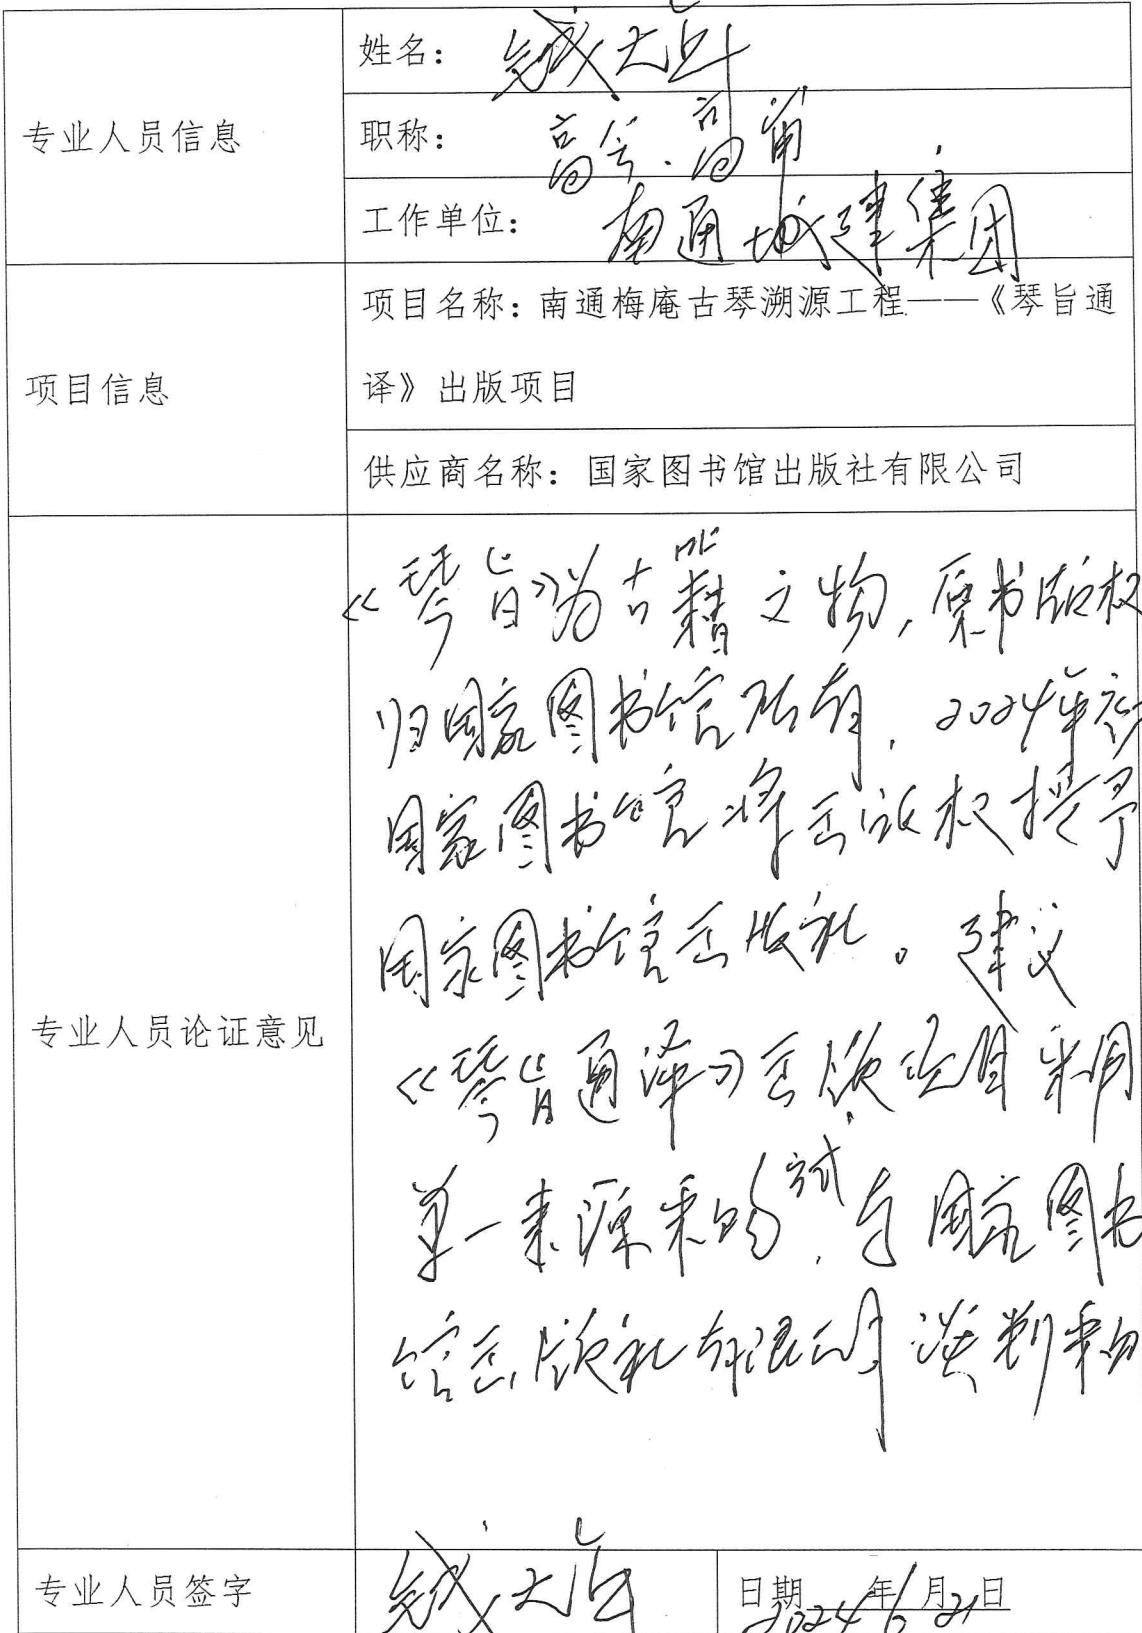 专业人员信息
姓名：钱大年
职称：高会、高审
工作单位：南通城建集团
项目信息
项目名称：南通梅庵古琴溯源工程——《琴旨通
译》出版项目
供应商名称：国家图书馆出版社有限公司
专业人员论证意见
《琴旨》为古籍文物，原书版权
归国家图书馆所有，2024年初
国家图书馆将出版权授予
国家图书馆出版社。建议
《琴旨通译》出版项目采用
单一来源采购方式，与国家图书
馆出版社有限公司谈判采购
专业人员签字
日期 2024年6月21日